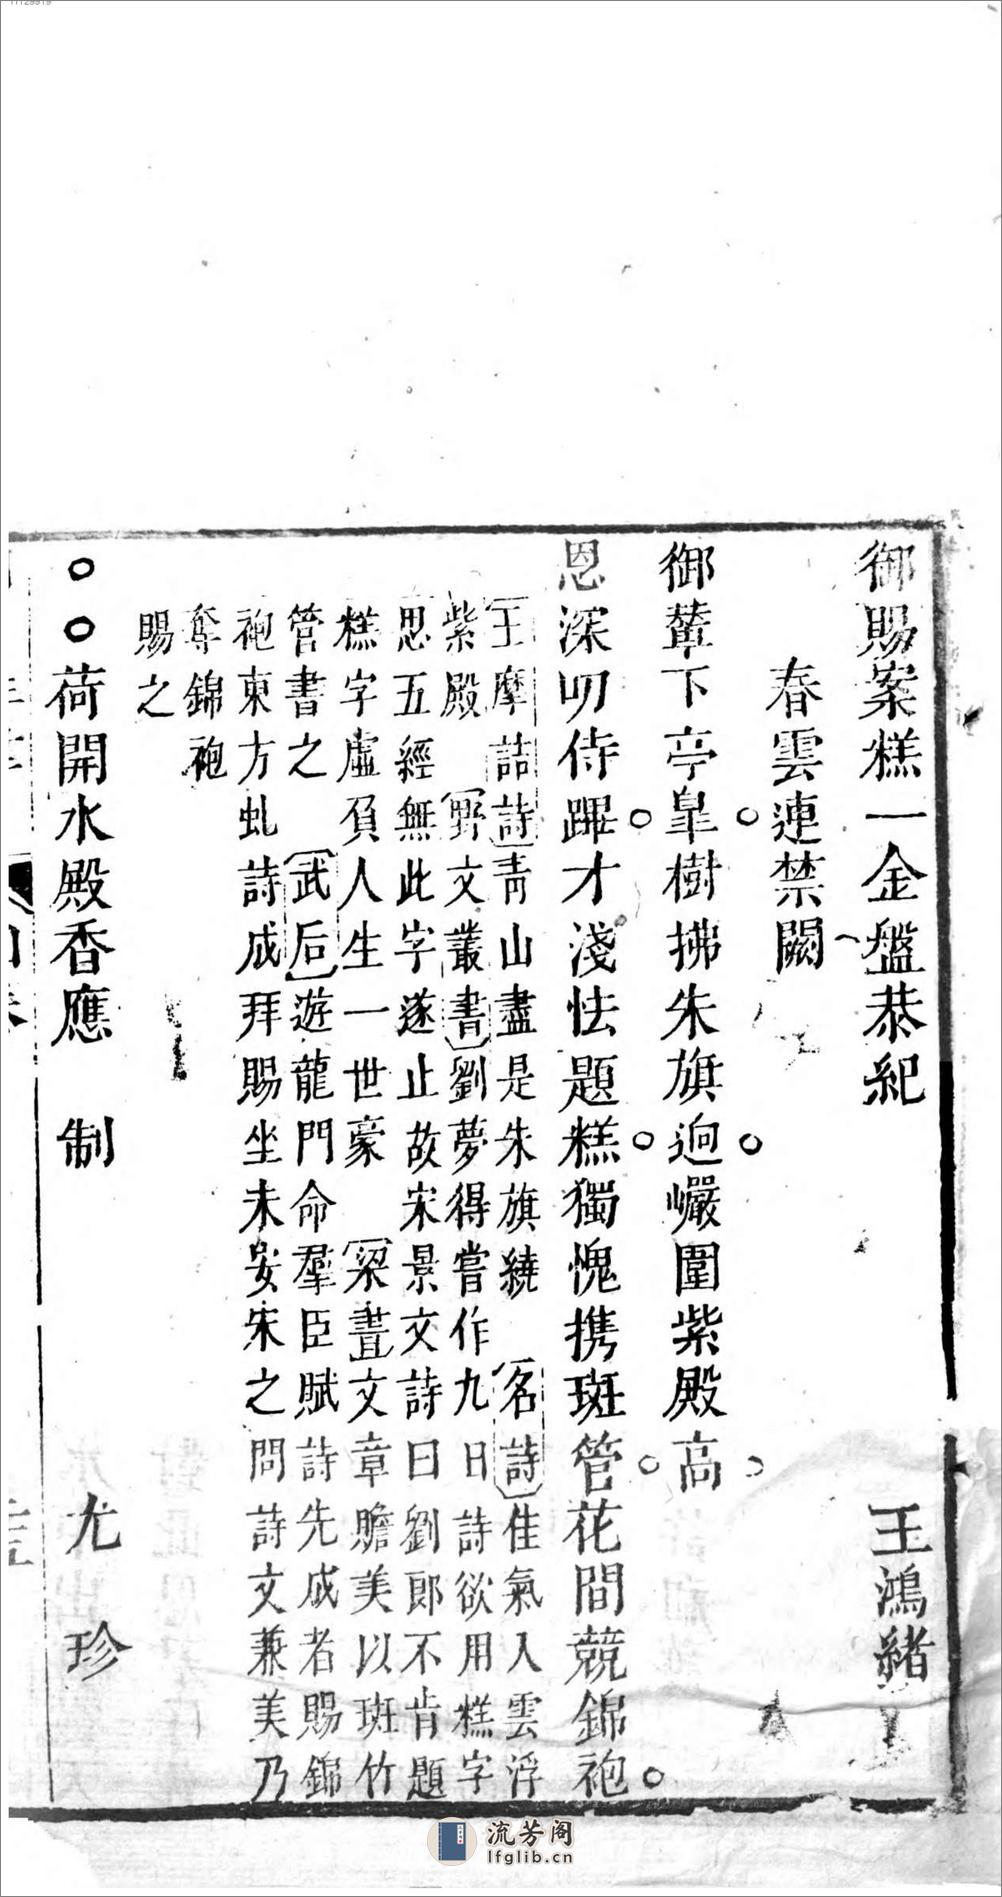 御賜案糕一金盤恭紀　王鴻緒
春雲連禁闕
御輦下亭臯樹拂朱旗逈巗圍紫殿高
恩深叨侍蹕才淺怯題糕獨愧携斑管花間競錦袍
王摩詰詩青山盡是朱旗繞　名詩佳氣人雲浮
紫殿　野文叢書劉夢得嘗作九日詩欲用糕字
思五經無此字遂止故宋景文詩曰劉郎不肯題
糕字虛負人生一世豪　梁書文章贍美以斑竹
管書之　武后遊龍門命羣臣賦詩先成者賜錦
袍東方虬詩成拜賜坐未安宋之問詩文兼美乃
奪錦袍
賜之
○○荷開水殿香應　制　尤　珍
流芳阁
lfglib.cn
11129919